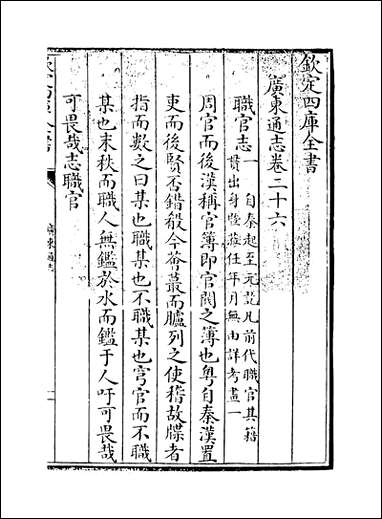 欽定四庫全書
廣東通志卷二十六
職官志一 自秦起至元量凡前代職官其籍
貫出身暨蒞任年月無由詳考畫一
周官而後漢稱官簿即官閥之簿也粵自秦漢置
吏而後賢否錯殽今薈蕞而臚列之使稽故牒者
指而數之曰某也職某也不職某也穹官而不職
某也末秩而職人無鑑於水而鑑于人吁可畏哉
可畏哉志職官